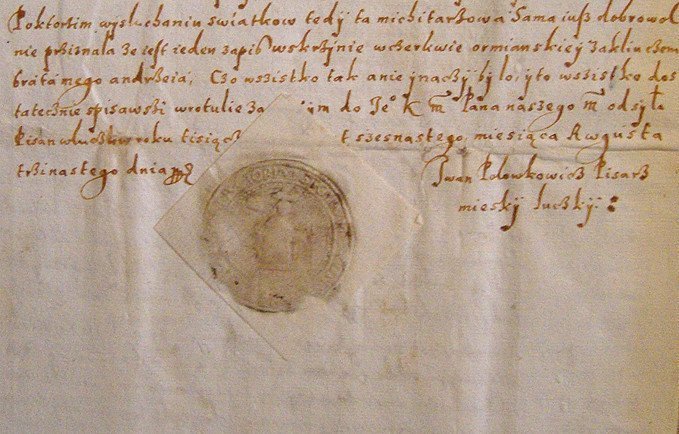 Poktorsim wysluchaniu swiatkow tedy ta michitarzowa Sama iusz dobrowol
nie przisnala ze iest ieden zapis wskrzynie wczerkwie ormianskiey zakluczem
brata mego andrzeia, Czo wszistko tak anie inaczy bylo, yto wssistko dos
tatecznie spisawszi wrotulie do Je° K M Pana naszego M odsyło
Pisan wluczku roku tisiącz szesnastego, miesiąca Awgusta
trzinastego dnia
Iwan Polowkowicz Pisarz
mieskÿ luczkÿ